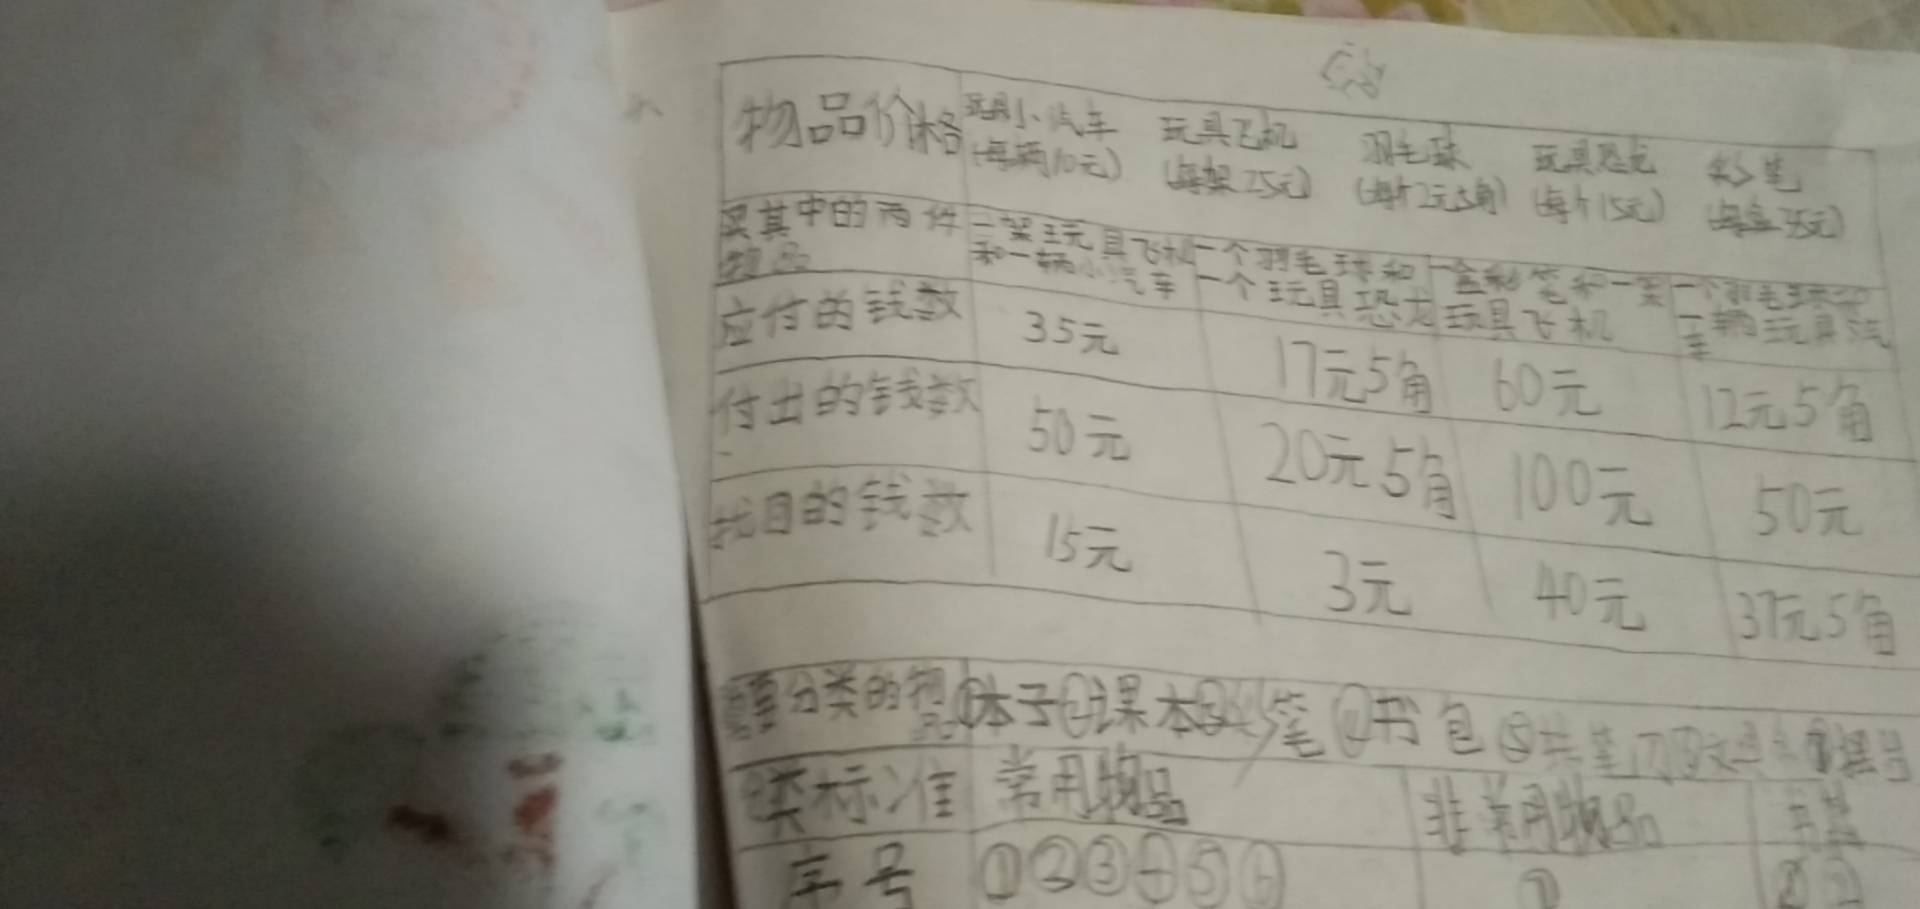 物品价格 玩具小汽车 玩具飞机 羽毛球 玩具恐龙 彩笔
(每辆10元) (每架25元) (每个2元5角) (每个15元) (每盒35元)
买其中的两件 一架玩具飞机 一个羽毛球和 一盒彩笔和一架 一个羽毛球和
物品 和一辆小汽车 一个玩具恐龙 玩具飞机 一辆玩具汽
车
应付的钱数 35元 17元5角 60元 12元5角
付出的钱数 50元 20元5角 100元 50元
找回的钱数 15元 3元 40元 37元5角
分类的物品 ①本子②课本③彩笔④书包⑤
类标准 常用物品 非常用物品
序号 ①②③④⑤⑥ ⑦